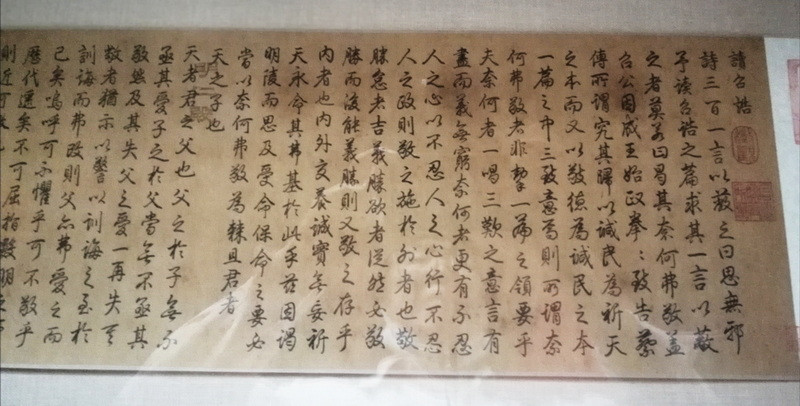 讀召誥
詩三百一言以蔽之曰思無邪
予读召誥之篇求其一言以蔽
之者莫若曰曷其奈何弗敬蓋
召公因成王始政拳〻致告蔡
傳所謂究其歸以諴民為祈天
之本而又以敬德為諴民之本
一篇之中三致意焉則所謂奈
何弗敬者非挈一篇之領要乎
夫奈何者一唱三歎之意言有
盡而義無窮奈何者更有不忍
人之心以不忍人之心行不忍
人之政則敬之施於外者也敬
勝怠者吉義勝欲者從然必敬
勝而後能義勝則又敬之存乎
內者也內外交養誠實無妄祈
天永命其弗基於此乎茲因謁
明陵而思及受命保命之要必
當以奈何弗敬為棘且君者
天之子也
天者君之父也父之於子無不
亟其愛子之於父當無不亟其
敬然及其失父之愛一再失其
敬者猶示以警以訓誨之至於
訓誨而弗改則父亦弗愛之而
已矣嗚呼可不懼乎可不敬乎
歷代選矣不可屈指數明之
則近